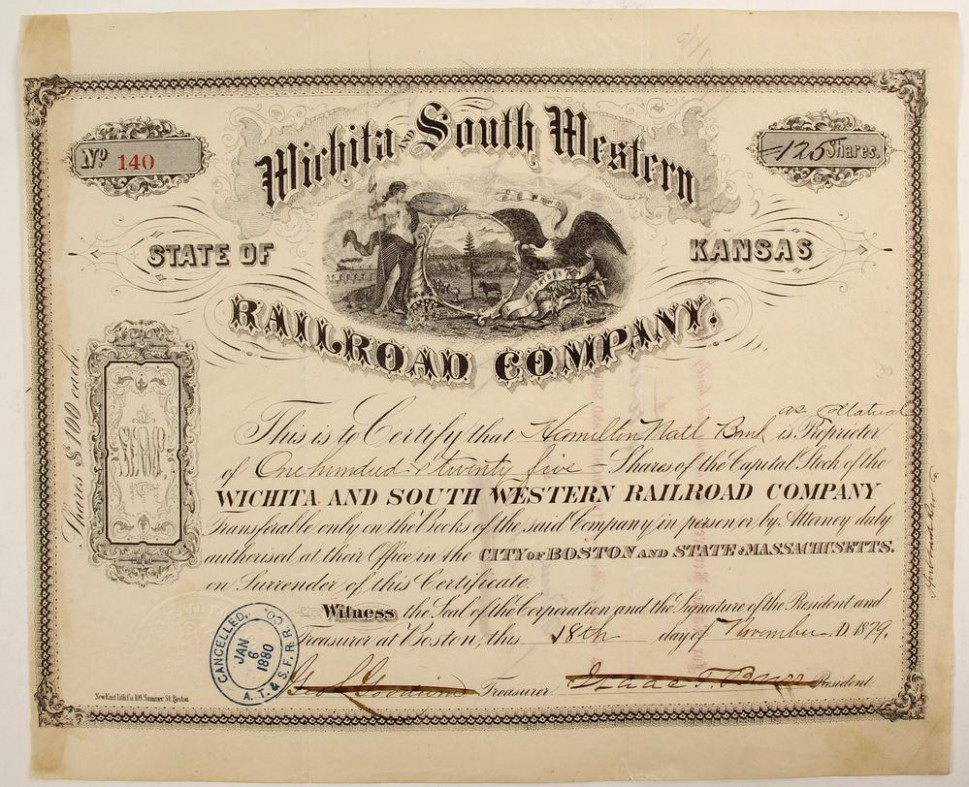 Nº 140
125 Shares.
Wichita AND South Western
STATE OF KANSAS
RAILROAD COMPANY.
Shares $100 each.
$100
as Collateral
This is to Certify that Hamilton Natl Bank is Proprietor
of One hundred & twenty five Shares of the Capital Stock of the
WICHITA AND SOUTH WESTERN RAILROAD COMPANY
Transferable only on the Books of the said Company in person or by Attorney duly
authorised at their Office in the CITY OF BOSTON AND STATE OF MASSACHUSETTS.
on Surrender of this Certificate.
Witness the Seal of the Corporation and the Signature of the President and
Treasurer at Boston, this 18th day of November A.D. 1879.
Treasurer. President.
CANCELLED,
JAN
6
1880
A. T. & S. F. R. R. CO.
New Eng. Lith. Co. 109 Summer St. Boston